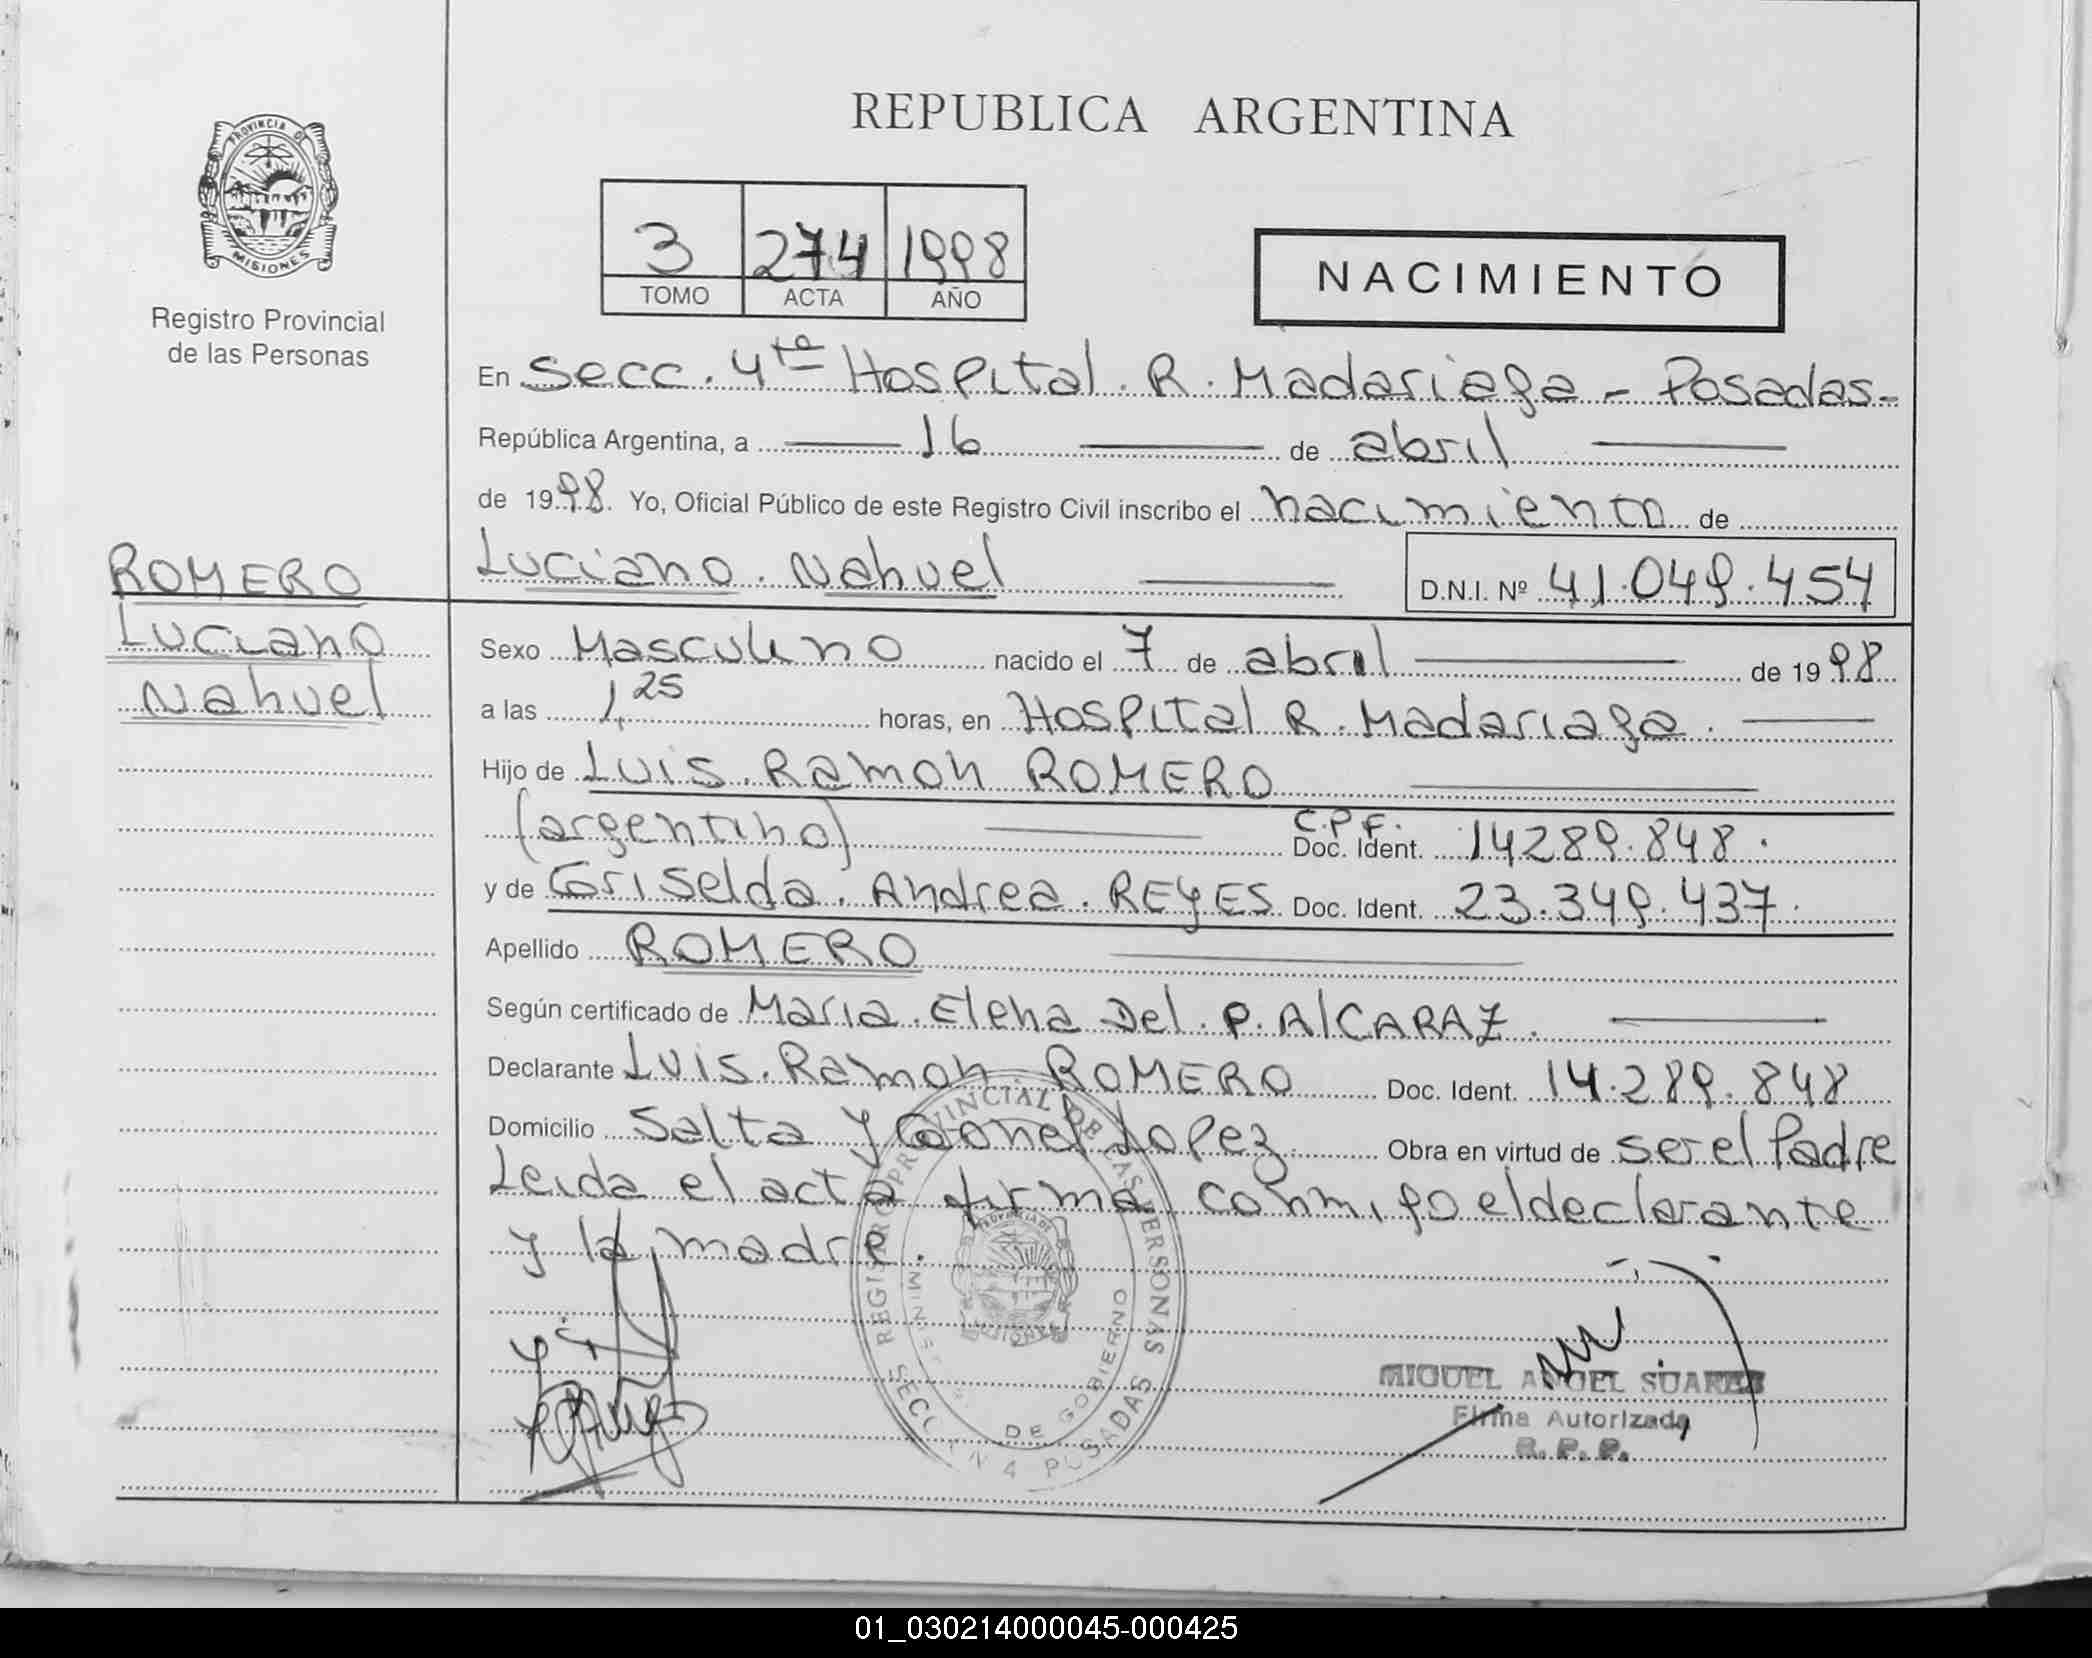 REPUBLICA ARGENTINA
PROVINCIA DE
MISIONES
Registro Provincial
de las Personas
3 274 1998
TOMO ACTA AÑO
NACIMIENTO
En Secc. 4ta Hospital. R. Madariaga - Posadas-
República Argentina, a 16 de abril
de 1998. Yo, Oficial Público de este Registro Civil inscribo el nacimiento de
Luciano. Nahuel D.N.I. Nº 41.049.454
ROMERO
Luciano
Nahuel
Sexo Masculino nacido el 7 de abril de 1998
a las 1,25 horas, en Hospital R. Madariaga.
Hijo de Luis. Ramon ROMERO
(argentino) C.P.F. Doc. Ident. 14289.848.
y de Griselda. Andrea. REYES Doc. Ident. 23.349.437.
Apellido ROMERO
Según certificado de Maria. Elena Del. P. AlCARAZ.
Declarante Luis. Ramon ROMERO Doc. Ident. 14.289.848
Domicilio Salta y Lopez Obra en virtud de ser el Padre
Leida el acta firma conmigo el declarante
y la madre.
REGISTRO PROVINCIAL DE LAS PERSONAS
MINISTERIO DE GOBIERNO
SECCION 4 POSADAS
MIGUEL ANGEL SUAREZ
Firma Autorizada
R. P. P.
01_030214000045-000425